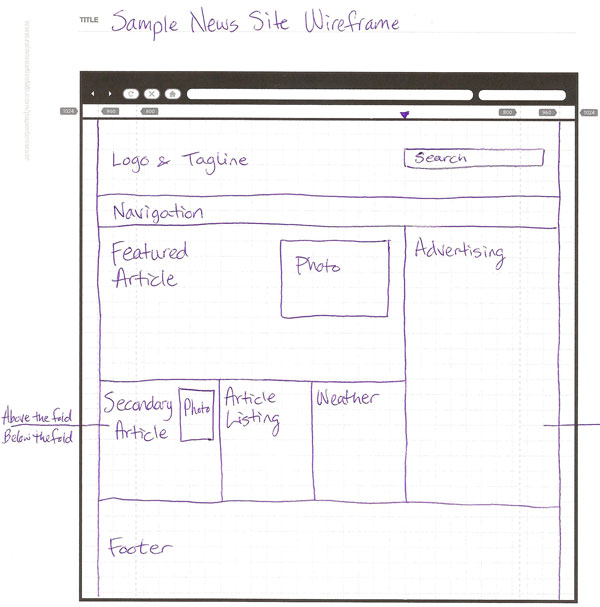 TITLE Sample News Site Wireframe
1024 960 800 800 960 1024
Logo & Tagline
Search
Navigation
Featured
Article
Photo
Advertising
Secondary
Article
Photo
Article
Listing
Weather
Above the fold
Below the fold
Footer